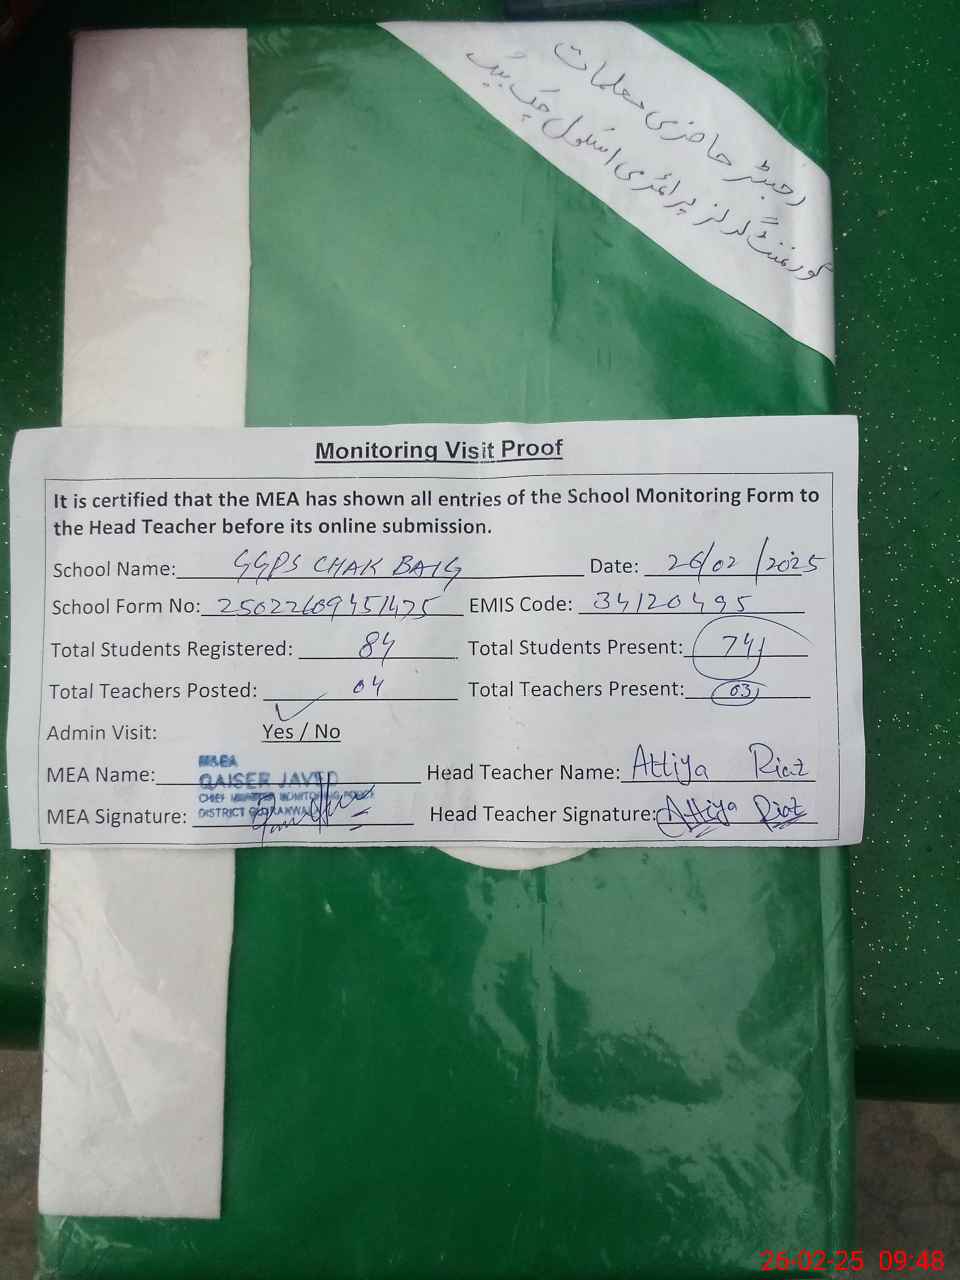 رجسٹر حاضری معلمات
گورنمنٹ گرلز پرائمری اسکول چک بیگ
Monitoring Visit Proof
It is certified that the MEA has shown all entries of the School Monitoring Form to
the Head Teacher before its online submission.
School Name: GGPS CHAK BAIG Date: 26/02/2025
School Form No: EMIS Code: 34120495
Total Students Registered: 84 Total Students Present: 74
Total Teachers Posted: 04 Total Teachers Present: 03
Admin Visit: Yes / No
M&EA
MEA Name: QAISER JAVED Head Teacher Name: Attiya Riaz
CHIEF MINISTER MONITORING FORCE
MEA Signature: DISTRICT GUJRANWALA Head Teacher Signature: Attiya Riaz
26-02-25 09:48